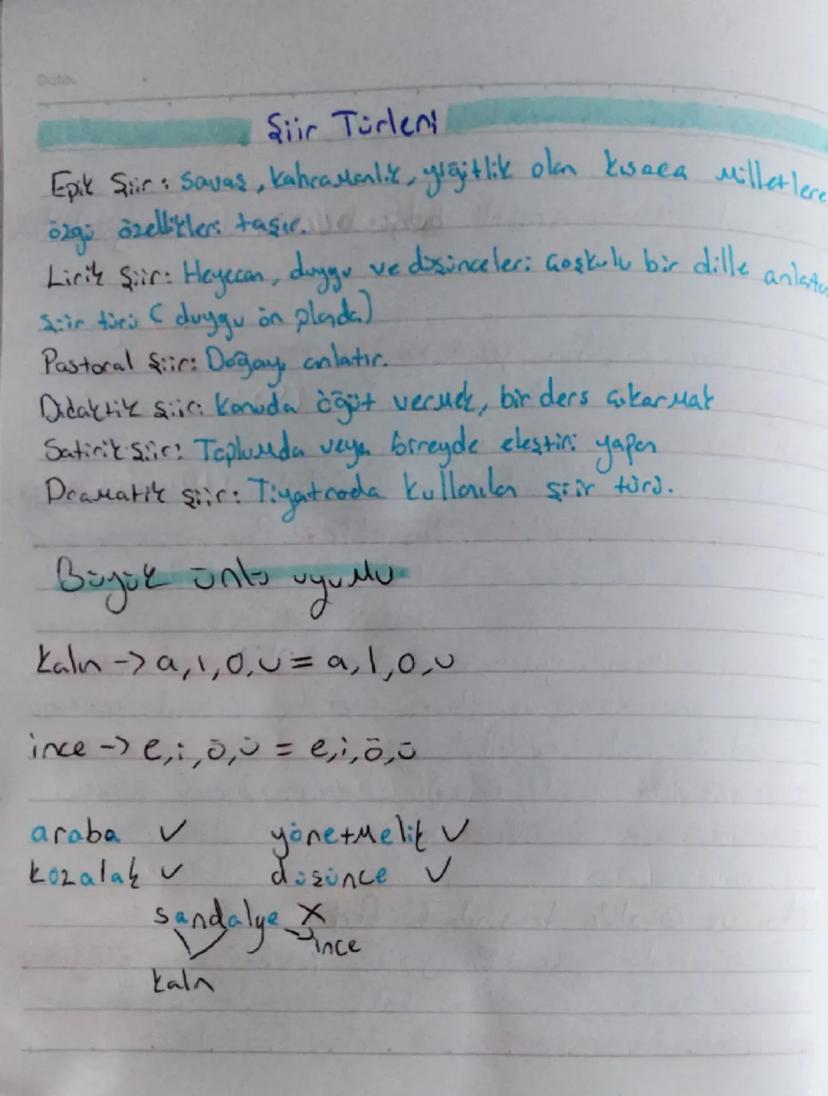 Date
Şiir Türleri
Epik Şiir: Savaş, kahramanlık, yiğitlik olan kısaca milletlere
özgü özellikleri taşır.
Lirik Şiir: Heyecan, duygu ve düşünceleri coşkulu bir dille anlatan
şiir türü (duygu ön planda)
Pastoral Şiir: Doğayı anlatır.
Didaktik şiir: Konuda öğüt vermek, bir ders çıkarmak
Satirik şiir: Toplumda veya bireyde eleştiri yapan
Dramatik şiir: Tiyatroda kullanılan şiir türü.
Büyük ünlü uyumu
kalın -> a, ı, o, u = a, ı, o, u
ince -> e, i, ö, ü = e, i, ö, ü
araba ✓ yönetmelik ✓
kozalak ✓ düşünce ✓
sandalye X
ince
kalın